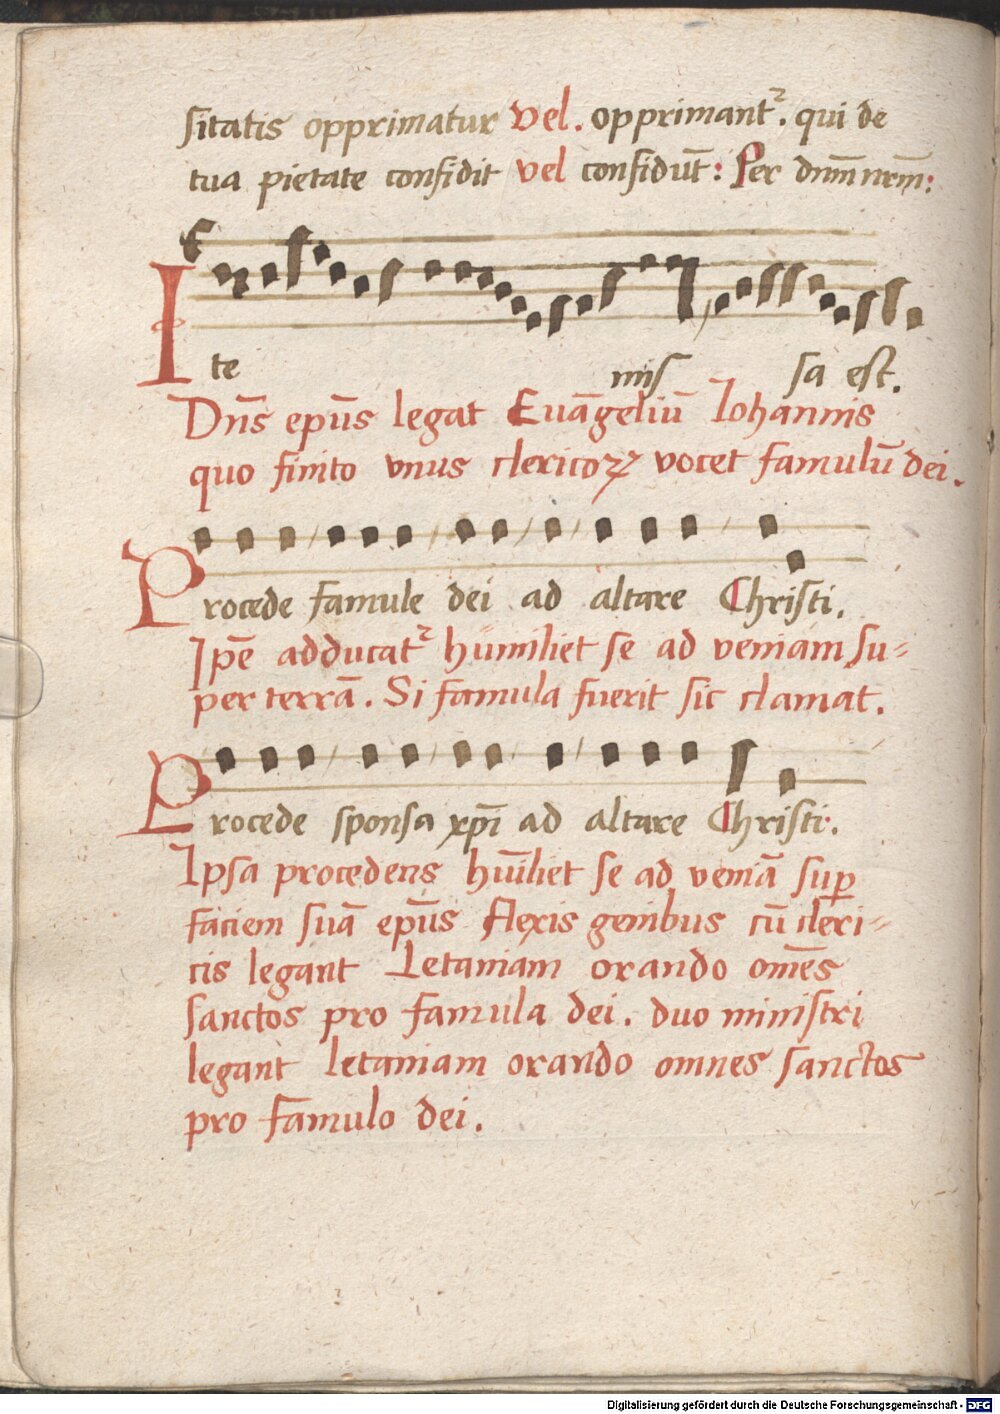 sitatis opprimatur vel. opprimant᷑. qui de
tua pietate confidit vel confidūt: Per dnm̄ nrm̄:
Ite missa est.
Dn̄s ep̄us legat Euāgeliū Iohannis
quo finito vnus clericoꝝ vocet famulū dei.
Procede famule dei ad altare Christi.
Ip̄e adducat᷑ humiliet se ad veniam su-
per terrā. Si famula fuerit sic clamat.
Procede sponsa xp̄i ad altare Christi.
Ipsa procedens hūiliet se ad veniā suꝑ
faciem suā ep̄us flexis genibus cū cleri-
cis legant Letaniam orando om̄es
sanctos pro famula dei. duo ministri
legant letaniam orando omnes sanctos
pro famulo dei.
Digitalisierung gefördert durch die Deutsche Forschungsgemeinschaft - DFG